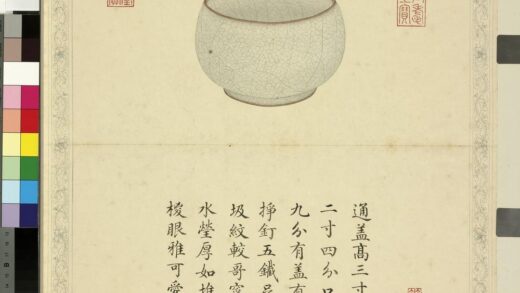 通盖髙三寸
二寸四分口
九分有盖有
挣釘五鐵足
圾紋較哥窑
水瑩厚如堆
椶眼雅可愛